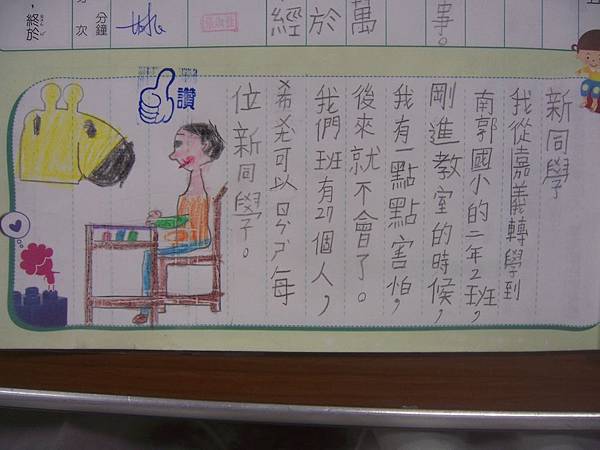 事。
萬
於
經
分鐘
次
，終於
新同學
我從嘉義轉學到
南郭國小的二年2班，
剛進教室的時候，
我有一點點害怕，
後來就不會了。
我們班有27個人，
希望可以ㄖㄣˋㄕ每
位新同學。
讚